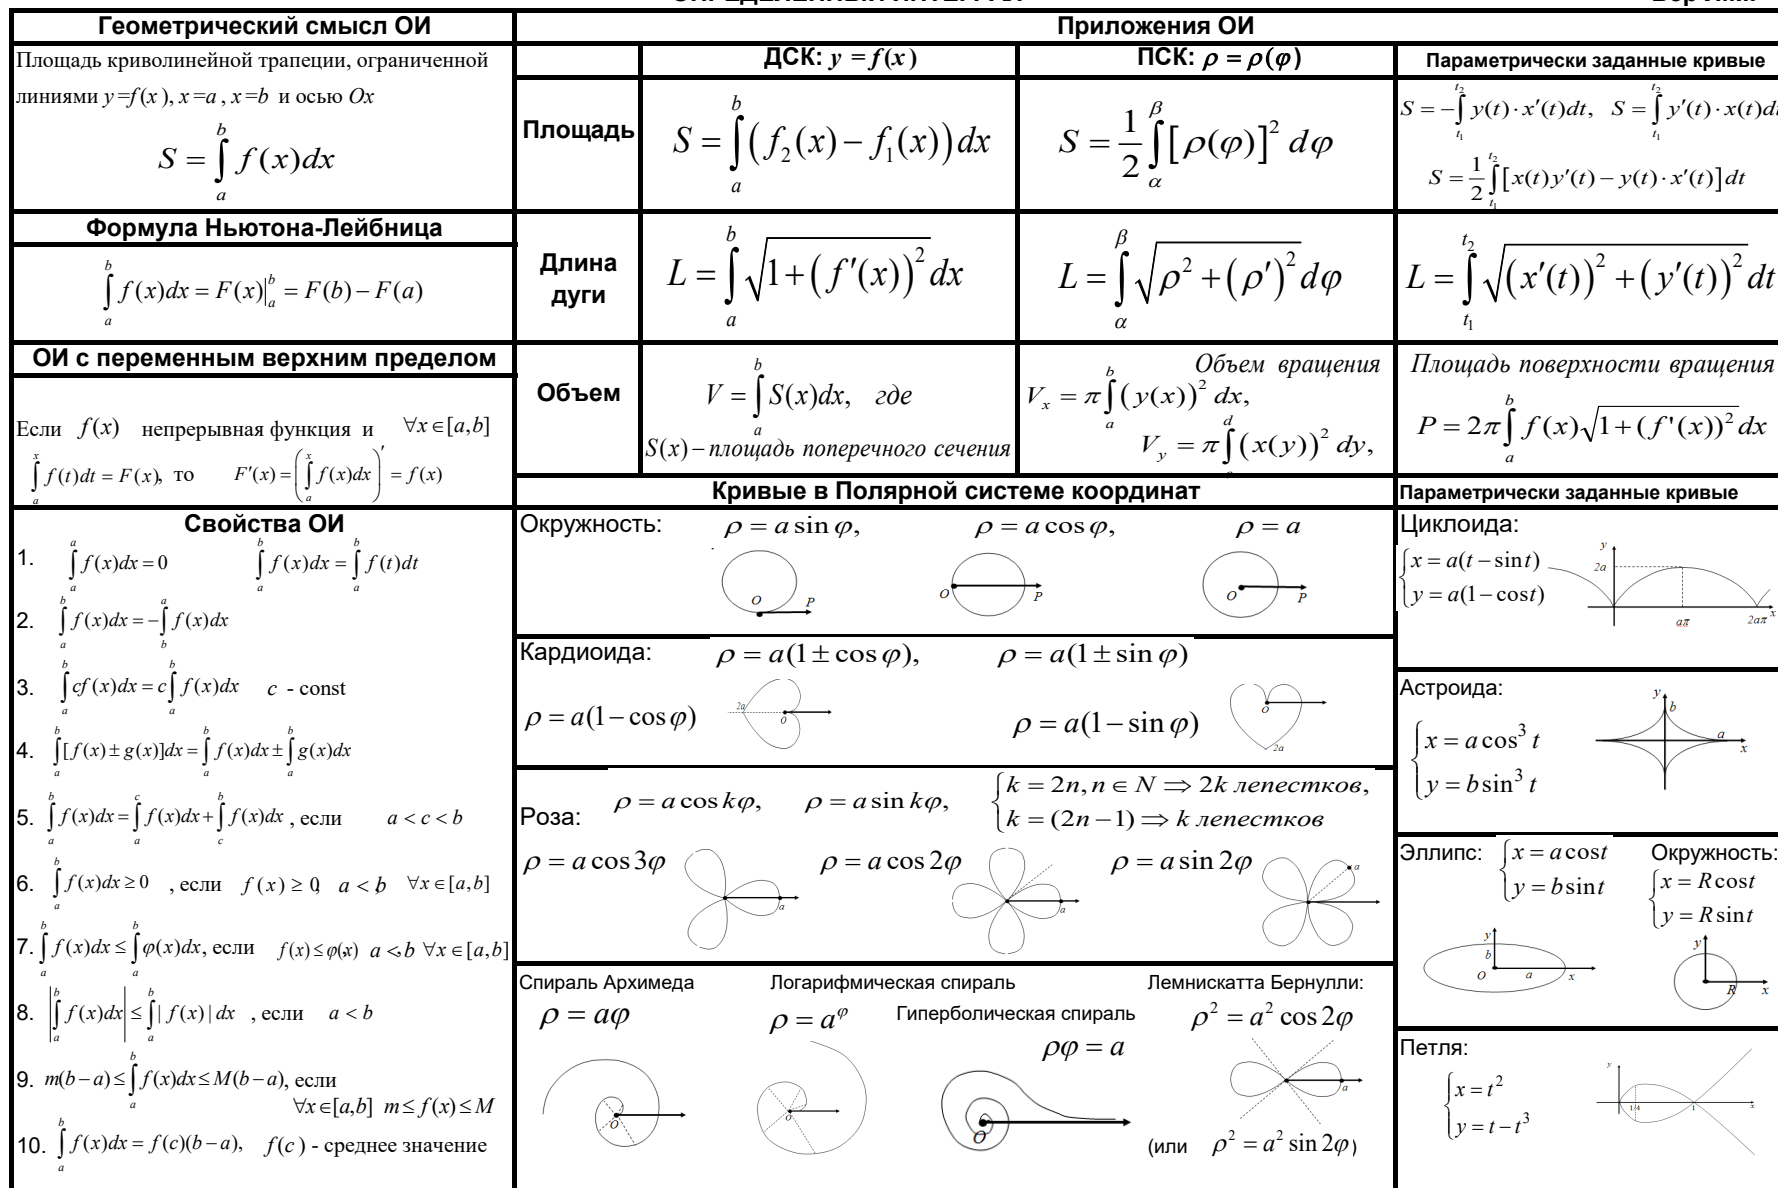 Геометрический смысл ОИ
Площадь криволинейной трапеции, ограниченной
линиями y=f(x), x=a, x=b и осью Ox
S = ∫_a^b f(x)dx
Формула Ньютона-Лейбница
∫_a^b f(x)dx = F(x)|_a^b = F(b) − F(a)
ОИ с переменным верхним пределом
Если f(x) непрерывная функция и ∀x∈[a,b]
∫_a^x f(t)dt = F(x), то F′(x) = (∫_a^x f(x)dx)′ = f(x)
Свойства ОИ
1. ∫_a^a f(x)dx = 0 ∫_a^b f(x)dx = ∫_a^b f(t)dt
2. ∫_a^b f(x)dx = −∫_b^a f(x)dx
3. ∫_a^b cf(x)dx = c∫_a^b f(x)dx c - const
4. ∫_a^b [f(x) ± g(x)]dx = ∫_a^b f(x)dx ± ∫_a^b g(x)dx
5. ∫_a^b f(x)dx = ∫_a^c f(x)dx + ∫_c^b f(x)dx , если a < c < b
6. ∫_a^b f(x)dx ≥ 0 , если f(x) ≥ 0, a < b ∀x∈[a,b]
7. ∫_a^b f(x)dx ≤ ∫_a^b φ(x)dx, если f(x) ≤ φ(x) a < b ∀x∈[a,b]
8. |∫_a^b f(x)dx| ≤ ∫_a^b |f(x)|dx , если a < b
9. m(b−a) ≤ ∫_a^b f(x)dx ≤ M(b−a), если
∀x∈[a,b] m ≤ f(x) ≤ M
10. ∫_a^b f(x)dx = f(c)(b−a), f(c) - среднее значение
Приложения ОИ
ДСК: y = f(x) ПСК: ρ = ρ(φ) Параметрически заданные кривые
Площадь
S = ∫_a^b (f₂(x) − f₁(x))dx
S = 1/2 ∫_α^β [ρ(φ)]² dφ
S = −∫_{t₁}^{t₂} y(t)·x′(t)dt, S = ∫_{t₁}^{t₂} y′(t)·x(t)dt
S = 1/2 ∫_{t₁}^{t₂} [x(t)y′(t) − y(t)·x′(t)]dt
Длина
дуги
L = ∫_a^b √(1+(f′(x))²)dx
L = ∫_α^β √(ρ²+(ρ′)²)dφ
L = ∫_{t₁}^{t₂} √((x′(t))²+(y′(t))²)dt
Объем
V = ∫_a^b S(x)dx, где
S(x) – площадь поперечного сечения
Объем вращения
V_x = π∫_a^b (y(x))² dx,
V_y = π∫^d (x(y))² dy,
Площадь поверхности вращения
P = 2π∫_a^b f(x)√(1+(f'(x))²)dx
Кривые в Полярной системе координат
Окружность: ρ = a sin φ, ρ = a cos φ, ρ = a
O P
O P
O P
Кардиоида: ρ = a(1 ± cos φ), ρ = a(1 ± sin φ)
ρ = a(1 − cos φ) 2a 0 ρ = a(1 − sin φ) O 2a
Роза: ρ = a cos kφ, ρ = a sin kφ,
{k = 2n, n ∈ N ⇒ 2k лепестков,
k = (2n−1) ⇒ k лепестков
ρ = a cos 3φ a ρ = a cos 2φ a ρ = a sin 2φ a
Спираль Архимеда
ρ = aφ
O
Логарифмическая спираль
ρ = a^φ
O
Гиперболическая спираль
ρφ = a
O
Лемнискатта Бернулли:
ρ² = a² cos 2φ
a
(или ρ² = a² sin 2φ)
Параметрически заданные кривые
Циклоида:
{x = a(t − sin t)
y = a(1 − cos t)
y 2a aπ 2aπ x
Астроида:
{x = a cos³ t
y = b sin³ t
y b a x
Эллипс:
{x = a cos t
y = b sin t
y b O a x
Окружность:
{x = R cos t
y = R sin t
y R x
Петля:
{x = t²
y = t − t³
y 1/4 1 x